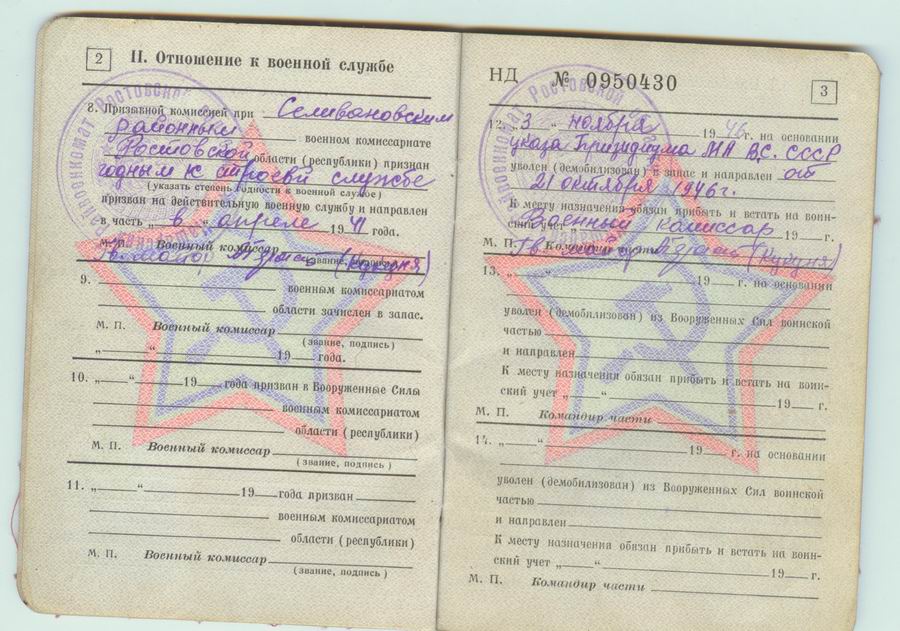 2
II. Отношение к военной службе
8. Призывной комиссией при Селивановским
районным военном комиссариате
Ростовской области (республики) признан
годным к строевой службе
(указать степень годности к военной службе)
призван на действительную военную службу и направлен
в часть „ в “ апреле 1941 года.
М. П. Военный комиссар
(Кукуня)
9.
военным комиссариатом
области зачислен в запас.
М. П. Военный комиссар
(звание, подпись)
„ “ 19 года.
10. „ “ 19 года призван в Вооруженные Силы
военным комиссариатом
области (республики)
М. П. Военный комиссар
(звание, подпись)
11. „ “ 19 года призван
военным комиссариатом
области (республики)
М. П. Военный комиссар
(звание, подпись)
НД № 0950430
3
12. „ 3 “ ноября 1946 г. на основании
указа Призидиума МА В.С. СССР
уволен (демобилизован) в запас и направлен от
21 октября 1946 г.
К месту назначения обязан прибыть и встать на воин-
ский учет Военный комиссар 19 г.
М. П. Командир части (Кукуня)
13. „ “ 19 г. на основании
уволен (демобилизован) из Вооруженных Сил воинской
частью
и направлен
К месту назначения обязан прибыть и встать на воин-
ский учет „ “ 19 г.
М. П. Командир части
14. „ “ 19 г. на основании
уволен (демобилизован) из Вооруженных Сил воинской
частью
и направлен
К месту назначения обязан прибыть и встать на воин-
ский учет „ “ 19 г.
М. П. Командир части